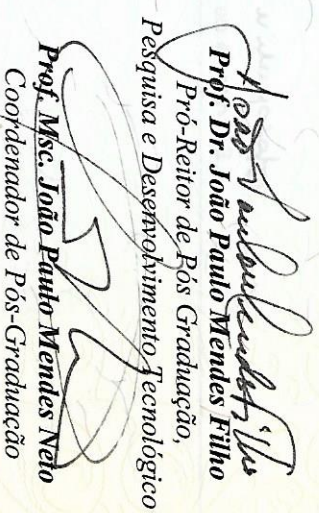 Prof. Dr. João Paulo Mendes Filho
Pró-Reitor de Pós Graduação,
Pesquisa e Desenvolvimento Tecnológico
Prof. Msc. João Paulo Mendes Neto
Coordenador de Pós-Graduação